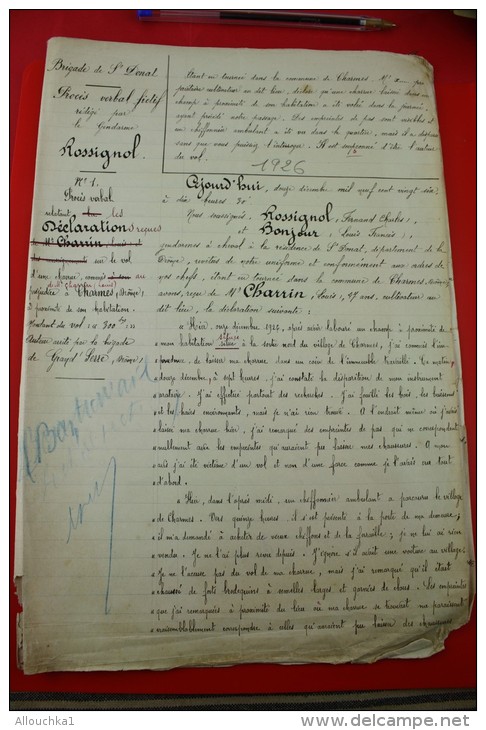 Brigade de St Donat
Procès verbal fictif
rédigé par
le Gendarme
Rossignol.
N° 1.
Procès verbal
relatant les
Déclaration reçues
de Mr Charrin, Louis
sur le vol
d'une charrue, commis au
préjudice à Charmes (Drôme)
à proximité de son habitation.
Montant du vol : 300 frs
Auteur arrêté par la brigade
de Grand Serre (Drôme)
Etant en tournée dans la commune de Charmes, Mr
cultivateur au dit lieu, qu'une charrue laissée dans un
champ à proximité de son habitation a été volée dans la journée,
ayant précédé notre passage. Des empreintes de pas sont visibles et
un chiffonnier ambulant a été vu dans le quartier, mais il a disparu
sans que vous puissiez l'interroger. Il est soupçonné d'être l'auteur
du vol.
1926
Aujourd'hui, douze décembre mil neuf cent vingt six
à dix heures 30'
Nous soussignés, Rossignol, (Fernand Charles)
et Bonjour (Louis Francis),
gendarmes à cheval à la résidence de St Donat, département de la
Drôme, revêtus de notre uniforme et conformément aux ordres de
nos chefs, étant en tournée dans la commune de Charmes (Drôme)
avons, reçu de Mr Charrin, (Louis), 47 ans, cultivateur au
dit lieu, la déclaration suivante :
« Hier, onze décembre 1926, après avoir labouré un champ à proximité de
mon habitation située à la sortie nord du village de Charmes, j'ai commis
de laisser ma charrue dans un coin de l'immeuble travaillé. Ce matin,
douze décembre, à sept heures, j'ai constaté la disposition de mon instrument
aratoire. J'ai effectué partout des recherches. J'ai fouillé les bois, les buissons
et les haies environnants, mais je n'ai rien trouvé. A l'endroit même où j'avais
laissé ma charrue hier, j'ai remarqué des empreintes de pas qui ne correspondent
nullement avec les empreintes qu'auraient pu laisser mes chaussures. A mon
avis j'ai été victime d'un vol et non d'une farce comme je l'avais cru tout
d'abord.
« Hier, dans l'après midi, un chiffonnier ambulant a parcouru le village
« de Charmes. Vers quinze heures, il s'est présenté à la porte de ma demeure ;
« il m'a demandé à acheter de vieux chiffons et de la ferraille ; je ne lui ai rien
« vendu. Je ne l'ai plus revu depuis. J'ignore s'il avait une voiture au village.
« Je ne l'accuse pas du vol de ma charrue, mais j'ai remarqué qu'il était
« chaussé de forts brodequins à semelles larges et garnies de clous. Les empreintes
« que j'ai remarquées à proximité du lieu où ma charrue se trouvait me paraissent
« vraisemblablement correspondre à celles qu'auraient pu laisser des chaussures
Allouchka1
www.delcampe.net